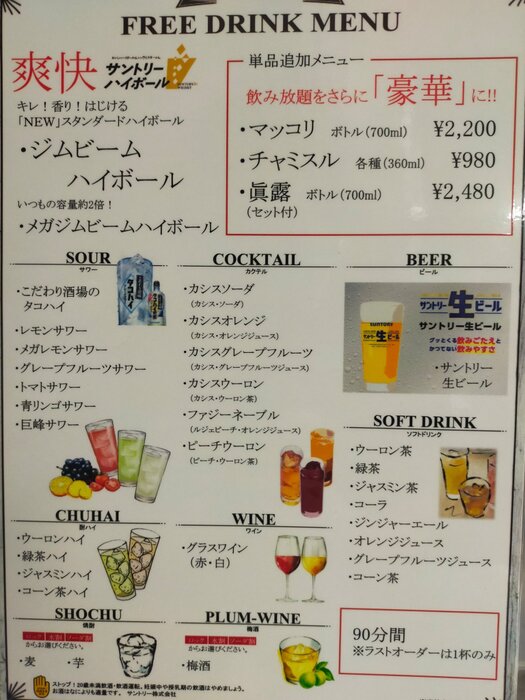 FREE DRINK MENU
爽快
サントリー
ハイボール
キレ！香り！はじける
「NEW」スタンダードハイボール
・ジムビーム
ハイボール
いつもの容量約2倍！
・メガジムビームハイボール
単品追加メニュー
飲み放題をさらに「豪華」に!!
・マッコリ ボトル(700ml) ¥2,200
・チャミスル 各種(360ml) ¥980
・眞露 ボトル(700ml) ¥2,480
(セット付)
SOUR
サワー
・こだわり酒場の
タコハイ
・レモンサワー
・メガレモンサワー
・グレープフルーツサワー
・トマトサワー
・青リンゴサワー
・巨峰サワー
COCKTAIL
カクテル
・カシスソーダ
(カシス・ソーダ)
・カシスオレンジ
(カシス・オレンジジュース)
・カシスグレープフルーツ
(カシス・グレープフルーツジュース)
・カシスウーロン
(カシス・ウーロン茶)
・ファジーネーブル
(ルジェピーチ・オレンジジュース)
・ピーチウーロン
(ピーチ・ウーロン茶)
BEER
ビール
サントリー生ビール
SUNTORY
サントリー生ビール
サントリー生ビール
グッとくる飲みごたえと
かつてない飲みやすさ
・サントリー
生ビール
SOFT DRINK
ソフトドリンク
・ウーロン茶
・緑茶
・ジャスミン茶
・コーラ
・ジンジャーエール
・オレンジジュース
・グレープフルーツジュース
・コーン茶
CHUHAI
酎ハイ
・ウーロンハイ
・緑茶ハイ
・ジャスミンハイ
・コーン茶ハイ
WINE
ワイン
・グラスワイン
(赤・白)
SHOCHU
焼酎
ロック 水割 ソーダ割
からお選びください。
・麦 ・芋
PLUM-WINE
梅酒
ロック 水割 ソーダ割
からお選びください。
・梅酒
90分間
※ラストオーダーは1杯のみ
ストップ！20歳未満飲酒・飲酒運転。妊娠中や授乳期の飲酒はやめましょう。
お酒はなによりも適量です。 サントリー株式会社